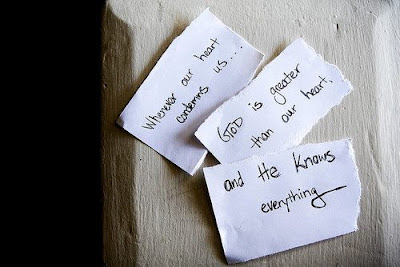 Whenever our heart
condemns us....
GOD is greater
than our heart,
and He knows
everything